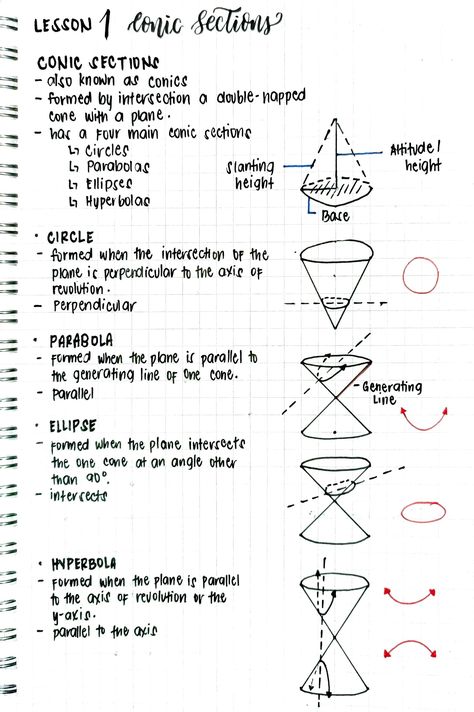 LESSON 1 Conic Sections
CONIC SECTIONS
- also known as conics
- formed by intersection a double-napped
cone with a plane.
- has a four main conic sections
↳ Circles
↳ Parabolas
↳ Ellipses
↳ Hyperbolas
Slanting
height
Altitude/
height
Base
• CIRCLE
- formed when the intersection of the
plane is perpendicular to the axis of
revolution.
- Perpendicular
• PARABOLA
- formed when the plane is parallel to
the generating line of one cone.
- Parallel
- Generating
Line
• ELLIPSE
- formed when the plane intersects
the one cone at an angle other
than 90°.
- intersects
• HYPERBOLA
- formed when the plane is parallel
to the axis of revolution or the
y-axis.
- parallel to the axis